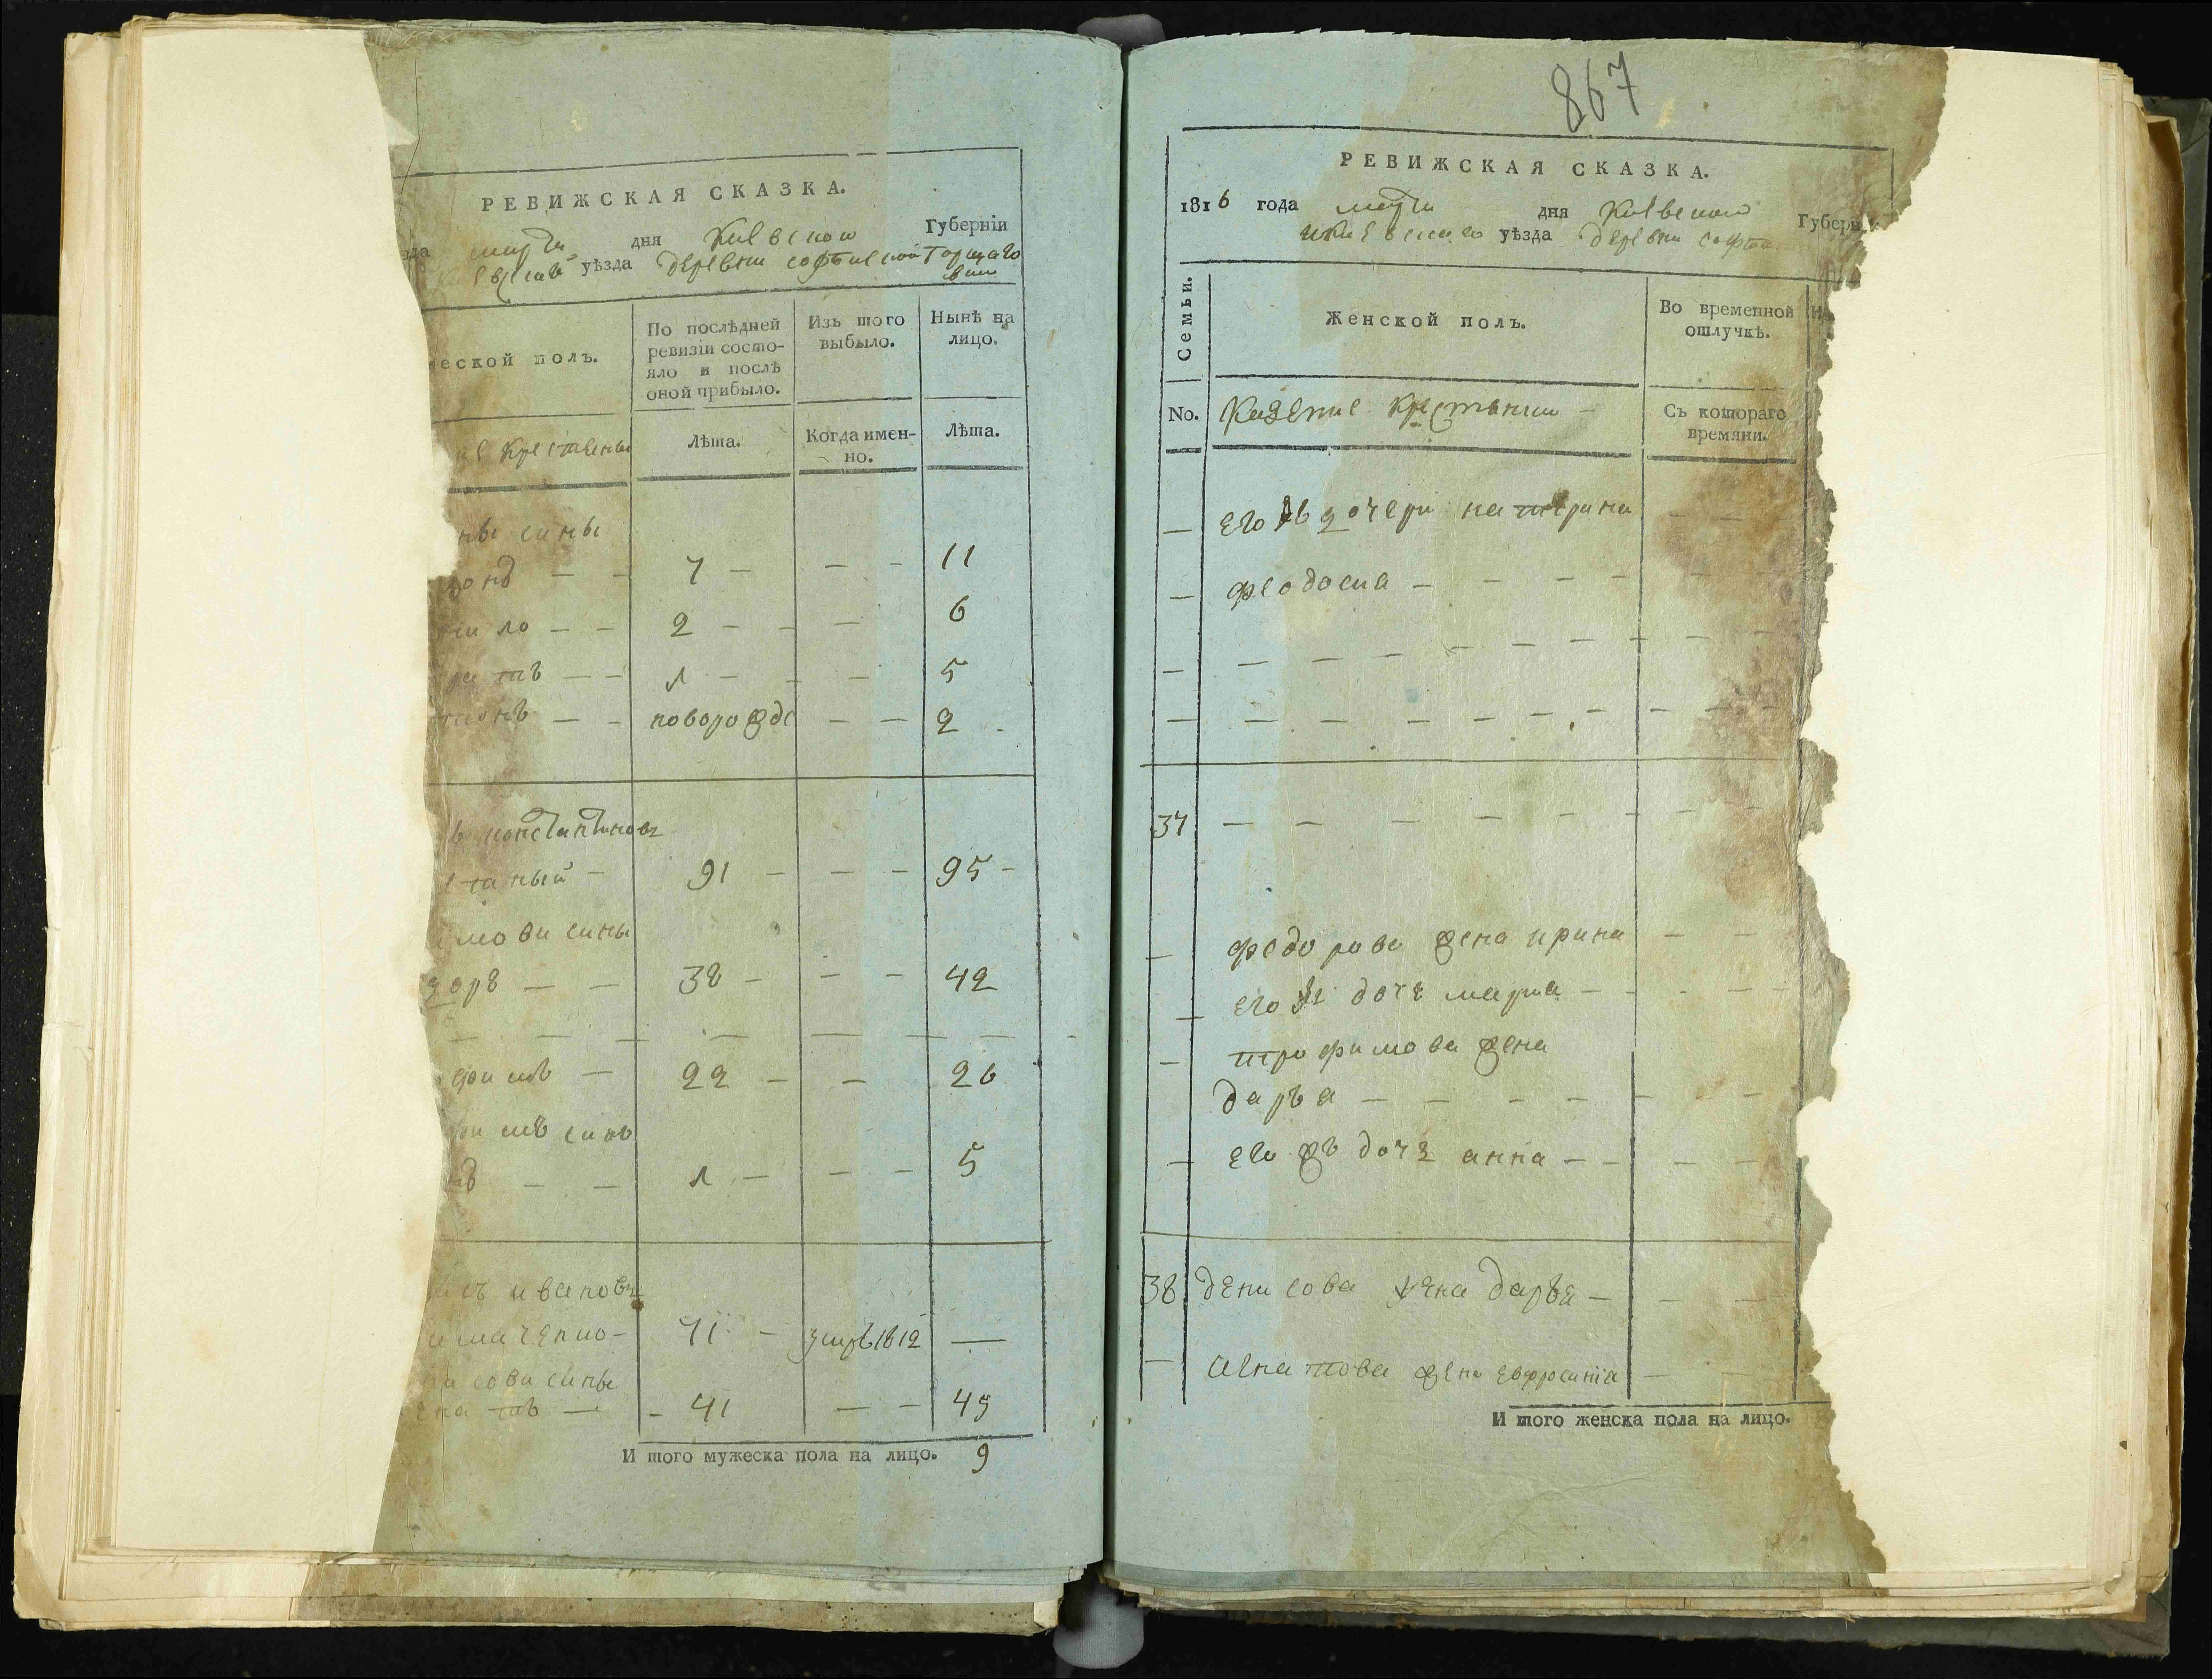 РЕВИЖСКАЯ СКАЗКА.
марта дня Киевской Губерніи
уѣзда деревни софѣиской
ческой полъ.
По послѣдней ревизіи состо-
яло и послѣ
оной прибыло.
Изъ того выбыло.
Нынѣ на лицо.
Крестьяны
Лѣта.
Когда имен-
но.
Лѣта.
ны сины
7 — — — 11
ило — — 2 — — — 6
л — — — 5
новорожде — — 2
константиновъ
91 — — — 95 —
мови сины
доръ — — 38 — — — 42
фимъ — 22 — — 26
фимъ синъ
л — — — 5
ивановъ
маченко — 71 — умръ 1812 —
сови сины
натъ — 41 — — 45
И того мужеска пола на лицо. 9
867
РЕВИЖСКАЯ СКАЗКА.
1816 года марта дня Киевской Губерн
уѣзда деревни софѣи
Семьи.
Женской полъ.
Во временной
отлучкѣ.
No.
Казение крестьянки —
Съ котораго
времяни.
его жъ дочери катерина
феодосиа —
37
федорова жена ирина
его жъ дочъ мариа —
трофимова жена
даръа —
его жъ дочъ анна —
38 денисова жена даръа —
игнатова жена евфросиніа
И того женска пола на лицо.